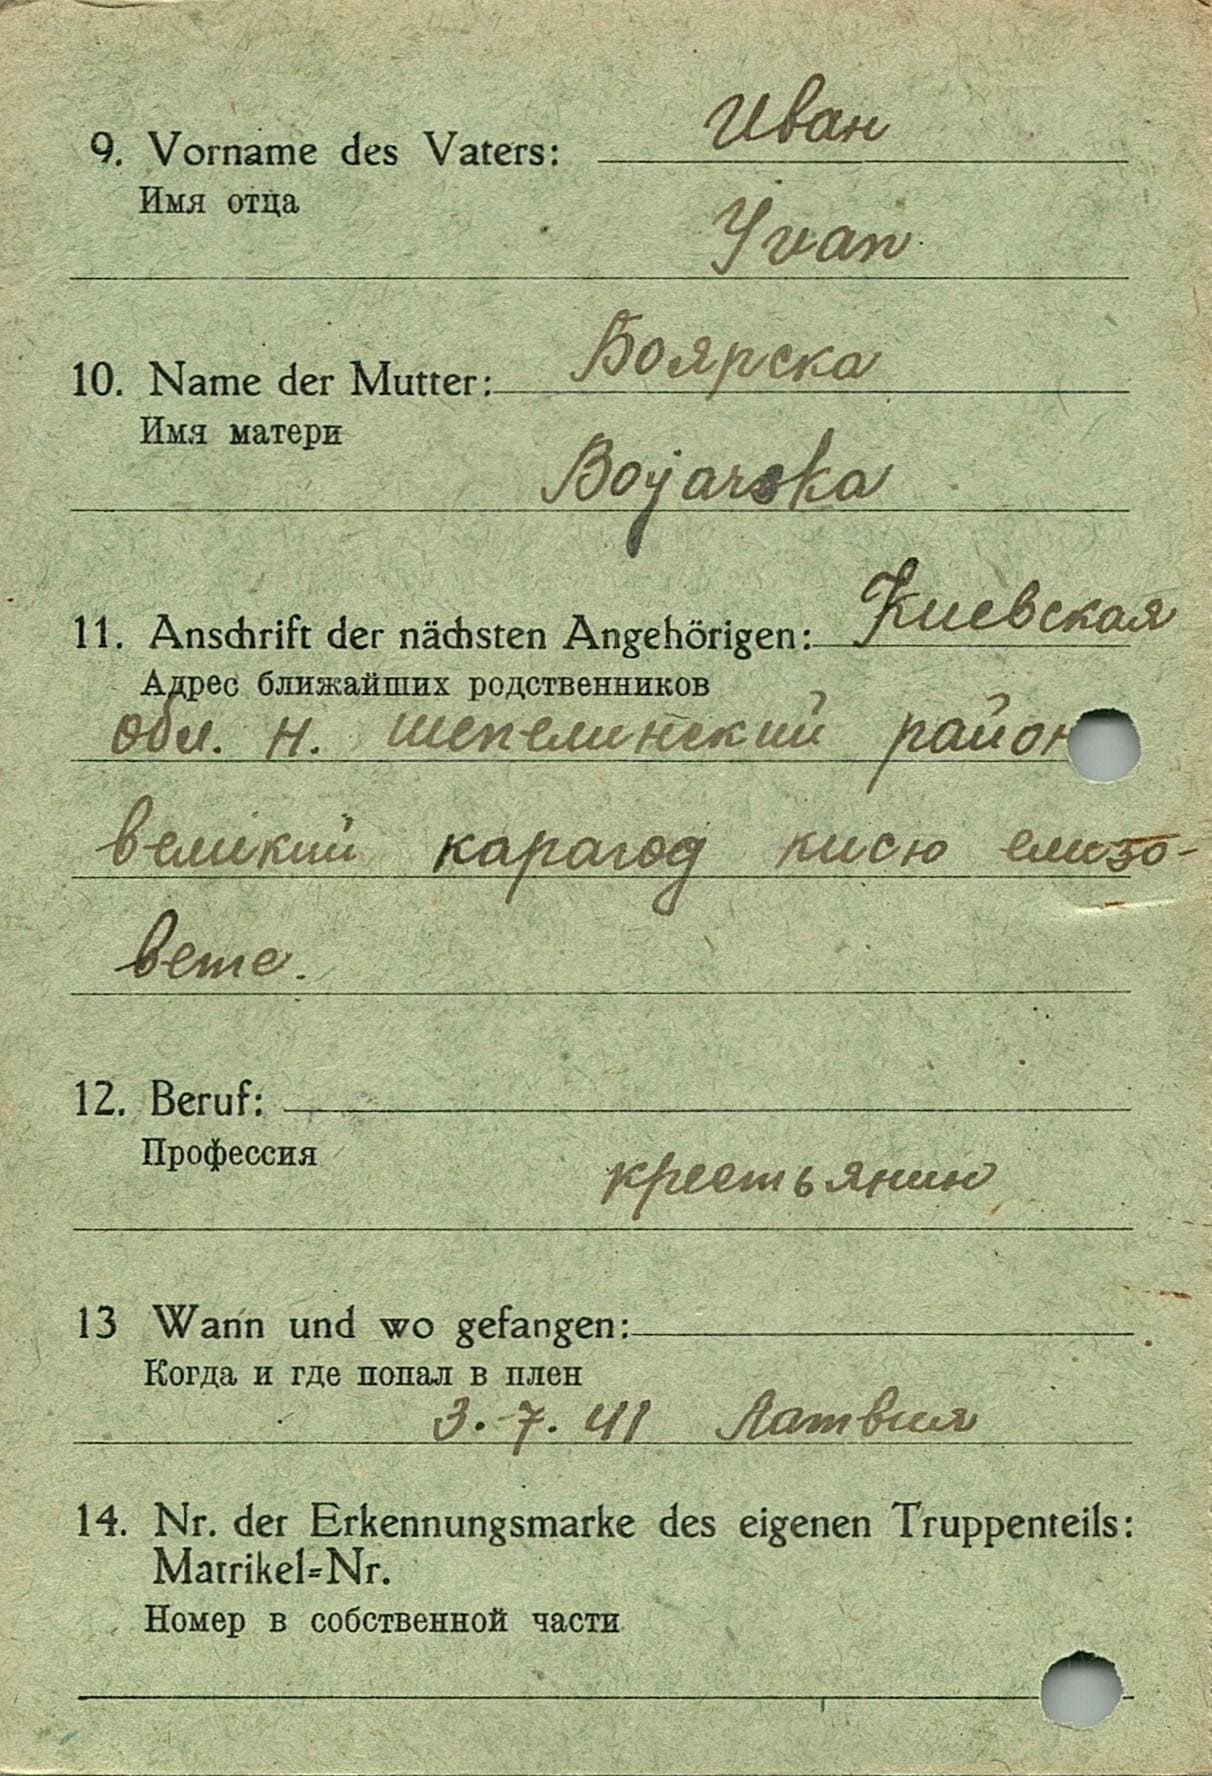 Иван
9. Vorname des Vaters:
Имя отца
Yvan
Боярска
10. Name der Mutter:
Имя матери
Bojarska
11. Anschrift der nächsten Angehörigen: Киевская
Адрес ближайших родственников
обл. н. шепелинский район
великий карагод кисю елизо-
вете.
12. Beruf:
Профессия
крестьянин
13 Wann und wo gefangen:
Когда и где попал в плен
3. 7. 41 Латвия
14. Nr. der Erkennungsmarke des eigenen Truppenteils:
Matrikel=Nr.
Номер в собственной части